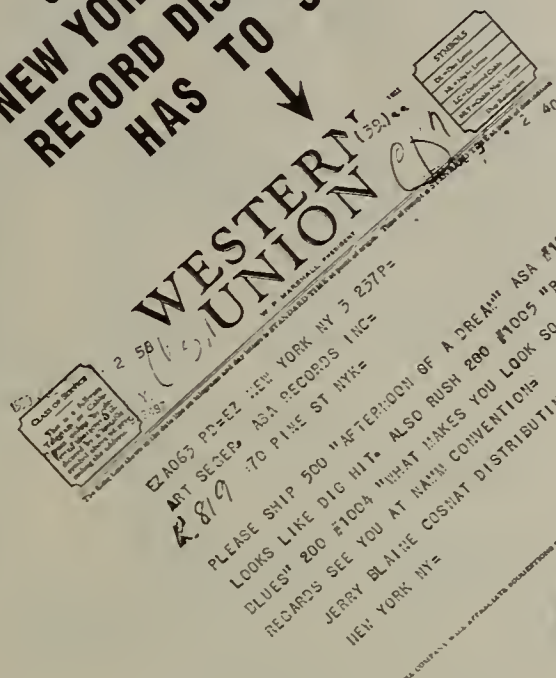 NEW YOR
RECORD DIS
HAS TO
WESTERN
UNION
W. P. MARSHALL, PRESIDENT
SYMBOLS
DL=Day Letter
NL=Night Letter
CLASS OF SERVICE
EZA063 PD=EZ NEW YORK NY 3 237P=
ART SEGER, ASA RECORDS INC=
R 819 :70 PINE ST NYK=
PLEASE SHIP 500 "AFTERNOON OF A DREAM" ASA #10
LOOKS LIKE DIG HIT. ALSO RUSH 280 #1005 "B
BLUES" 200 #1004 "WHAT MAKES YOU LOOK SO
REGARDS SEE YOU AT NAMM CONVENTION=
JERRY BLAINE COSNAT DISTRIBUTIN
NEW YORK NY=